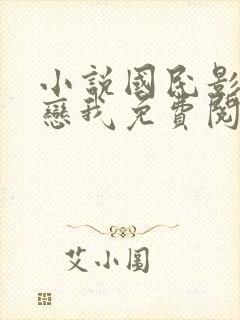 小說國民影
戀我免費閱
艾小圖